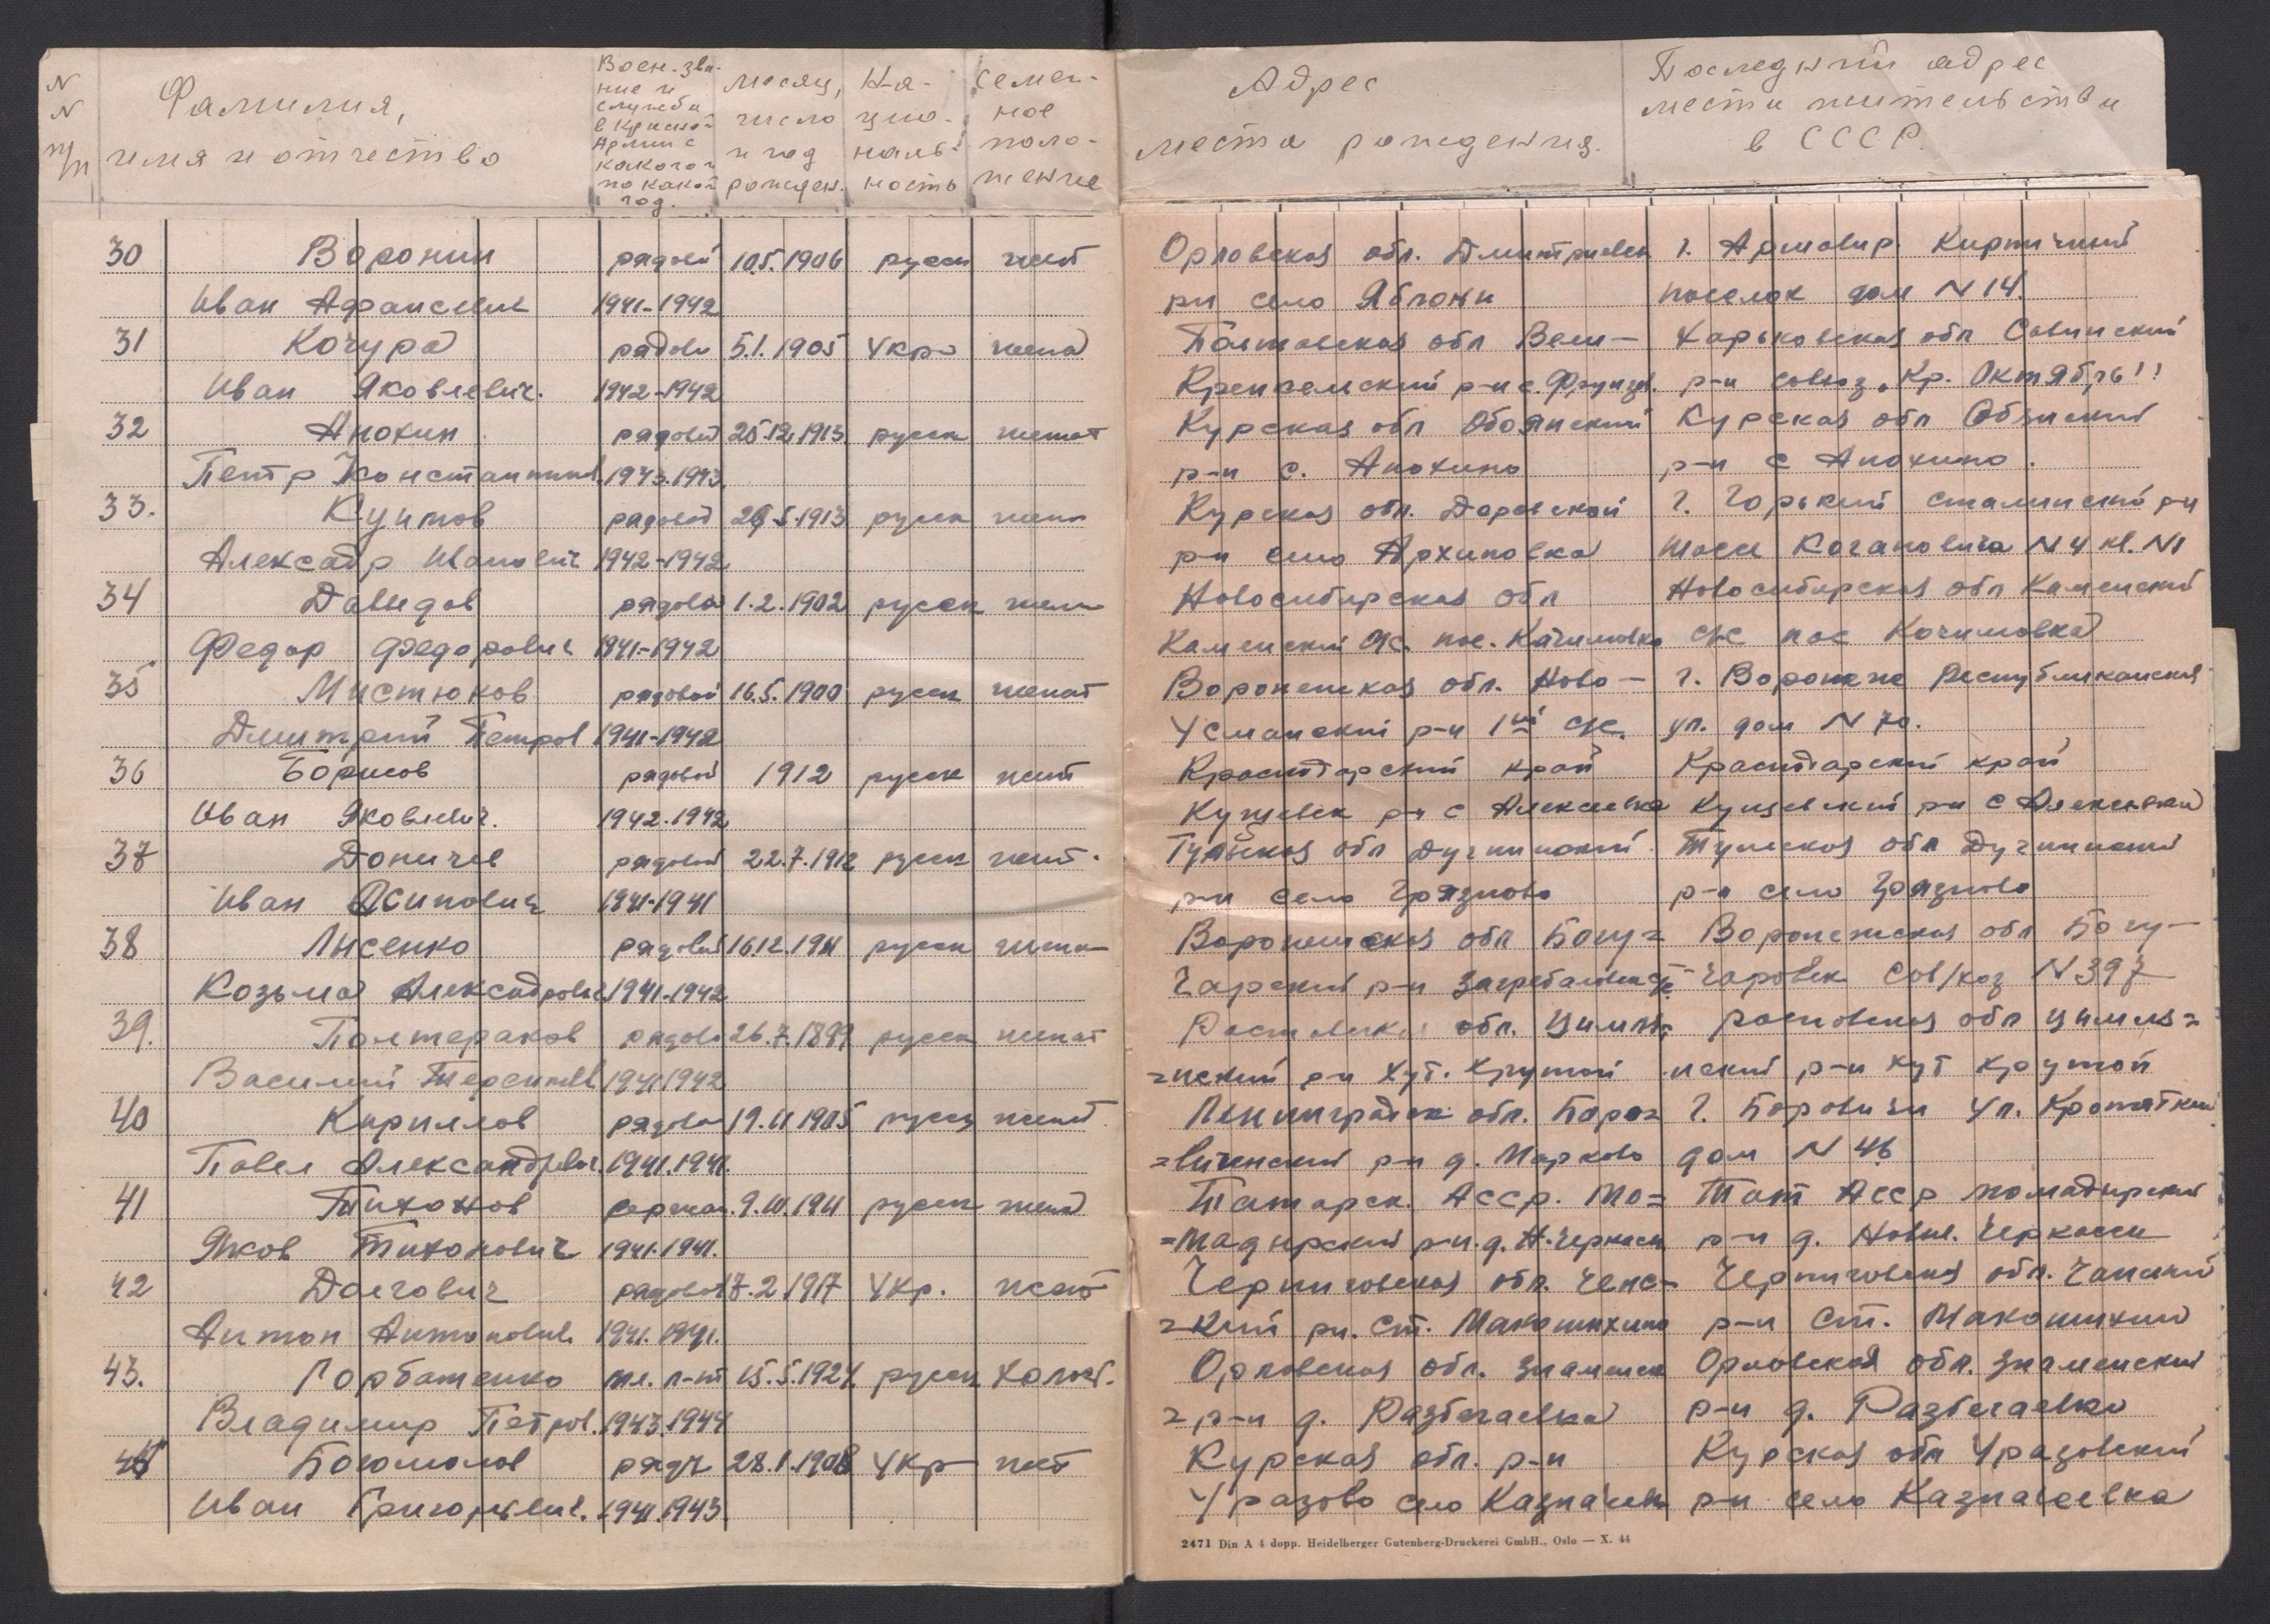 N
N
п/п
Фамилия,
имя и отчество
Воен. зва-
ние и
служба
в Красной
Армии с
какого и
по какой
год.
месяц,
число
и год
рожден.
На-
цио-
наль-
ность
Семей-
ное
поло-
жение
Адрес
места рождения.
Последний адрес
места жительства
в СССР.
30 Воронин рядовй 10.5.1906 русск жент Орловская обл. Дмитриевск г. Армавир. Кирпичный
Иван Афансевич 1941-1942 рн село Яблоки поселок дом N 14.
31 Кочура рядово 5.1.1905 Укра жена Полтавская обл Вели- Харьковская обл Савинский
Иван Яковлевич. 1942-1942 р-н с. Фрунзе. р-н совхоз „Кр. Октябрь"
32 Анохин рядовой 25.12.1913 русск женат Курская обл Обоянский Курская обл Обянский
Петр Константинов. 1943.1943. р-н с. Анохино р-н с Анохино.
33. Куимов рядовой 29.5.1913 русск жена Курская обл. г. Горький сталинский рн
Алексадр Иванович 1942-1942 р-н село Архиповка шоссе Когановича N 4 кв. N1
34 Давыдов рядовой 1.2.1902 русск жена Новосибирская обл Новосибирская обл Каменский
Федор Федорович 1941-1942 Каменский с/с. пос. Качимовка с/с пос Кочимовка
35 Мистюков рядовой 16.5.1900 русск женат Воронежская обл. Ново- г. Воронеже Республиканская
Дмитрий Петров 1941-1942 Усманский р-н 1ый с/с. ул. дом N 70.
36 Борисов рядовой 1912 русск жент Краснодарский край Краснодарский край
Иван Яковлевич. 1942.1942 Кущевск р-н с Алексеевка Кущевский р-н с Алексеевка
37 Доничев рядовой 22.7.1912 русск жент. Тульская обл Тульская обл
Иван Осипович 1941-1941 р-н село Грязново р-н село Грязново
38 Лысенко рядовой 16.12.1911 русск жена Воронежская обл Богу= Воронежская обл Богу-
Козьма Алексадрович 1941-1942 чарский р-н чаровск Сов/хоз N 397
39. Полтараков рядово 26.7.1899 русск женат Ростовская обл. Цимля= ростовская обл цимля=
Василий 1941 1942 =нский р-н хут. Крутой нский р-н хут крутой
40 Кириллов рядовой 19.11.1905 русск женат Ленинградск обл. Боро= г. Боровичи ул. Кропоткин
Павел Александрович 1941.1941. =виченский р-н д. Марково дом N 46
41 Тихонов сержан. 9.10.1911 русск жена Татарск. Асср. Мо= Тат Асср
Яков Тихонович 1941.1941. р-н. д. Н. Черкасы р-н д. Новые. Черкассы
42 Долгович рядовой 17.2.1917 Укр. жент Черниговская обл. Черниговская обл.
Антон Антонович 1941.1941. =кий рн. Ст. Макошихино р-н Ст. Макошихино
43. Горбатенко мл. л-нт 15.5.1924. русск холост. Орловская обл. Знаменск Орловская обл. Знаменский
Владимир Петров. 1943.1944 =р-н д. Разбегаевка р-н д. Разбегаевка
44 Богомолов 28.1.1908 Укр Курская обл. р-н Курская обл Уразовский
Иван Григорьевич. 1941.1943 Уразово село Казначеевка р-н село Казначеевка
2471 Din A 4 dopp. Heidelberger Gutenberg-Druckerei GmbH., Oslo — X. 44